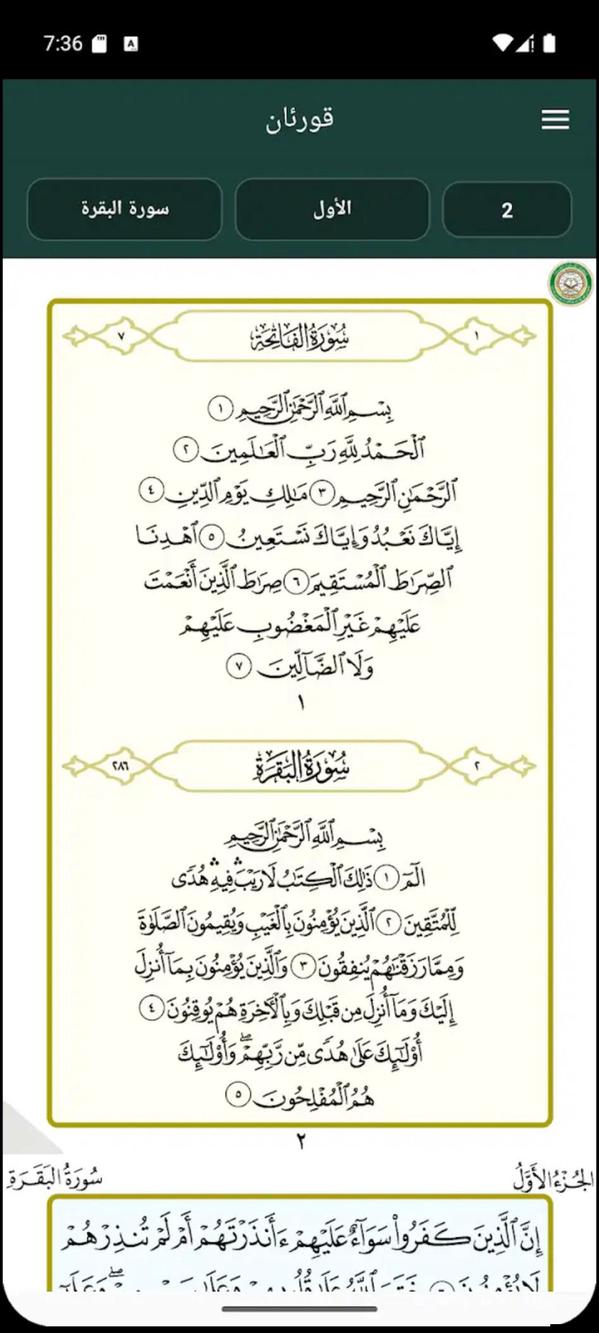 7:36
قورئان
2
الأول
سورة البقرة
١ سُورَةُ الفَاتِحَةِ ٧
بِسْمِ اللَّهِ الرَّحْمَٰنِ الرَّحِيمِ ١
الْحَمْدُ لِلَّهِ رَبِّ الْعَالَمِينَ ٢
الرَّحْمَٰنِ الرَّحِيمِ ٣ مَالِكِ يَوْمِ الدِّينِ ٤
إِيَّاكَ نَعْبُدُ وَإِيَّاكَ نَسْتَعِينُ ٥ اهْدِنَا
الصِّرَاطَ الْمُسْتَقِيمَ ٦ صِرَاطَ الَّذِينَ أَنْعَمْتَ
عَلَيْهِمْ غَيْرِ الْمَغْضُوبِ عَلَيْهِمْ
وَلَا الضَّآلِّينَ ٧
١
٢ سُورَةُ البَقَرَةِ ٢٨٦
بِسْمِ اللَّهِ الرَّحْمَٰنِ الرَّحِيمِ
الٓمٓ ١ ذَٰلِكَ الْكِتَابُ لَا رَيْبَ ۛ فِيهِ ۛ هُدًى
لِّلْمُتَّقِينَ ٢ الَّذِينَ يُؤْمِنُونَ بِالْغَيْبِ وَيُقِيمُونَ الصَّلَوٰةَ
وَمِمَّا رَزَقْنَاهُمْ يُنفِقُونَ ٣ وَالَّذِينَ يُؤْمِنُونَ بِمَآ أُنزِلَ
إِلَيْكَ وَمَآ أُنزِلَ مِن قَبْلِكَ وَبِالْآخِرَةِ هُمْ يُوقِنُونَ ٤
أُوْلَٰٓئِكَ عَلَىٰ هُدًى مِّن رَّبِّهِمْ ۖ وَأُوْلَٰٓئِكَ
هُمُ الْمُفْلِحُونَ ٥
٢
الجُزْءُ الأَوَّلُ
سُورَةُ البَقَرَةِ
إِنَّ الَّذِينَ كَفَرُوا۟ سَوَآءٌ عَلَيْهِمْ ءَأَنذَرْتَهُمْ أَمْ لَمْ تُنذِرْهُمْ
لَا يُؤْمِنُونَ